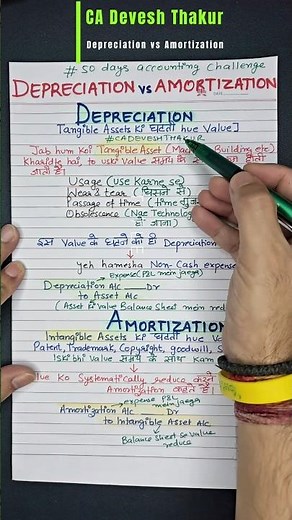 CA Devesh Thakur
Depreciation vs Amortization
# 50 days accounting challenge
DEPRECIATION VS AMORTIZATION
DEPRECIATION
Tangible Assets Ki घटती hue Value]
#CADEVESHTHAKUR
Jab hum Koi Tangible Asset (Mac Building etc)
Kharidte hai, to uski Value समय के होती
जाती है।
Usage (use Karne se)
Wear & tear (घिसने से)
Passage of time (time
Obsolescence (Nge Technolog
हो जाना)
इस Value के घटने को ही Depreciation
yeh hamesha Non-Cash expense
expense (P&L mein jaega)
Depreciation A/c ___ Dr
to Asset A/c
(Asset ki Value Balance Sheet mein red
AMORTIZATION
Intangible Assets Ki घटती hue V
Patent, Trademark, Copyright, goodwill, S
Iski bhi Value समय के साथ Kam
lue Ko Systematically reduce करने
Amortization कहते हैं।
expense P&L
mein jaega
Amortization A/c ___ Dr
to Intangible Asset A/c
Balance Sheet se Value
reduce